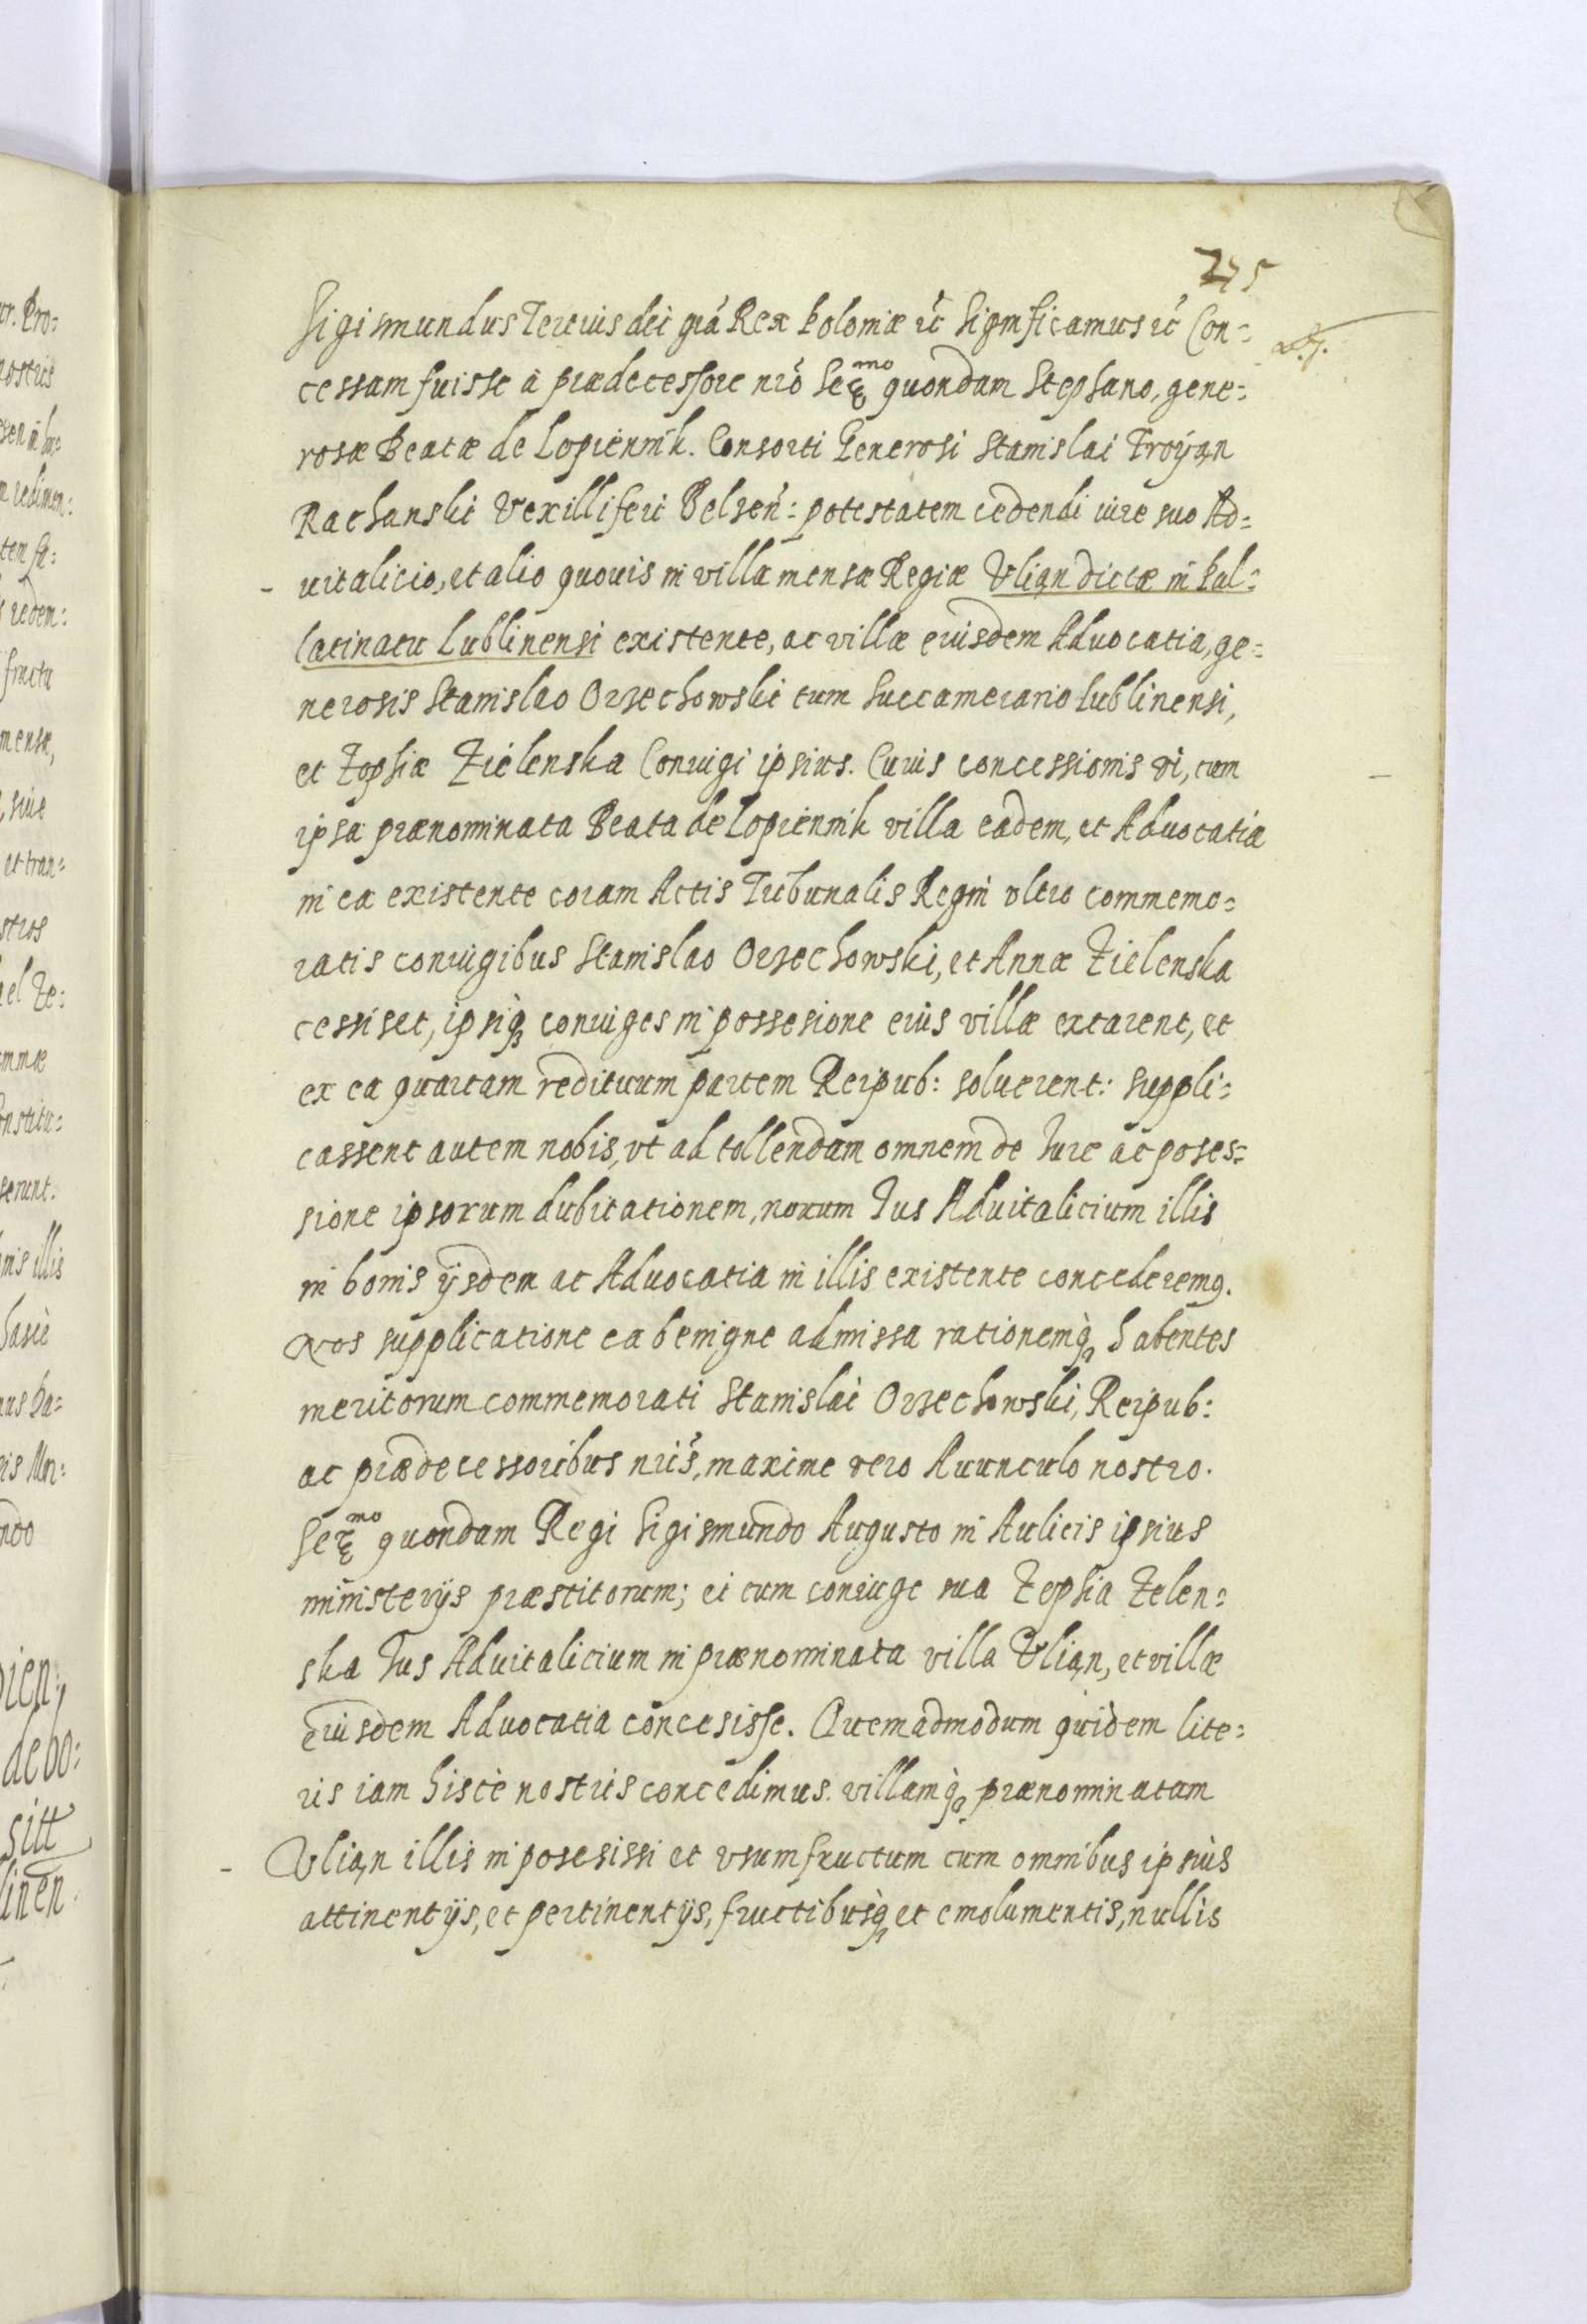 275
Sigismundus Tertius dei grã Rex Poloniæ etc̃ Significamus etc̃ Con=
cessam fuisse à prædecessore nr̃o Ser^mo quondam Stephano, gene=
rosæ Beatæ de Lopiennik. Consorti Generosi Stanislai Troyan
Rachanski Vexilliferi Belzen̄: potestatem cedendi iure suo Ad=
uitalicio, et alio quouis in villa mensæ Regiæ Vlian dictæ in Pal=
latinatu Lublinensi existente, ac villæ eiusdem Aduocatia, ge=
nerosis Stanislao Orzechowski tum Succamerario Lublinensi,
et Zophiæ Zielenska Coniugi ipsius. Cuius concessionis vi, cum
ipsa prænominata Beata de Lopiennik villa eadem, et Aduocatia
in ea existente coram Actis Tribunalis Regni vltro commemo=
ratis coniugibus Stanislao Orzechowski, et Annæ Zielenska
cessiset, ipsiq̃ coniuges in possesione eius villæ extarent, et
ex ea quartam redituum partem Reipub: soluerent: suppli=
cassent autem nobis, vt ad tollendam omnem de Iure ac poses=
sione ipsorum dubitationem, nouum Ius Aduitalicium illis
in bonis ijsdem ac Aduocatia in illis existente concederemꝰ.
Nos supplicatione ea benigne admissa rationemq̃ habentes
meritorum commemorati Stanislai Orzechowski, Reipub:
ac prædecessoribus nr̃is, maxime vero Auunculo nostro.
Ser^mo quondam Regi Sigismundo Augusto in Aulicis ipsius
ministerijs præstitorum; ei cum coniuge sua Zophia Zelen=
ska Ius Aduitalicium in prænominata villa Vlian, et villæ
eiusdem Aduocatia concesisse. Quemadmodum quidem lite=
ris iam hisce nostris concedimus. villamq̃ prænominatam
Vlian illis in posesissi et vsumfructum cum omnibus ipsius
attinentijs, et pertinentijs, fructibusq̃ et emolumentis, nullis